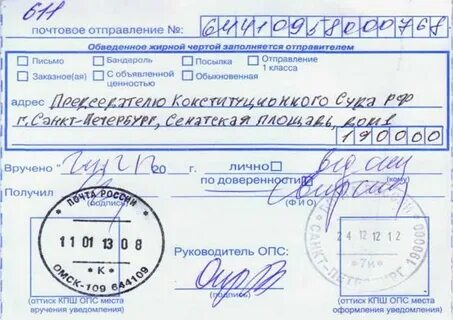 611
почтовое отправление №: 64410958000768
Обведенное жирной чертой заполняется отправителем
Письмо Бандероль Посылка Отправление 1 класса
Заказное(ая) С объявленной ценностью Обыкновенная
адрес Председателю Конституционного Суда РФ
г. Санкт-Петербург, Сенатская площадь, дом 1
190000
Вручено 20 г. лично
Получил (подпись) по доверенности (кому) (ФИО)
ПОЧТА РОССИИ
11 01 13 08
* К *
ОМСК-109 644109
Руководитель ОПС:
(подпись)
24 12 12 12
САНКТ-ПЕТЕРБУРГ 190000
(оттиск КПШ ОПС места вручения уведомления)
(оттиск КПШ ОПС места оформления уведомления)